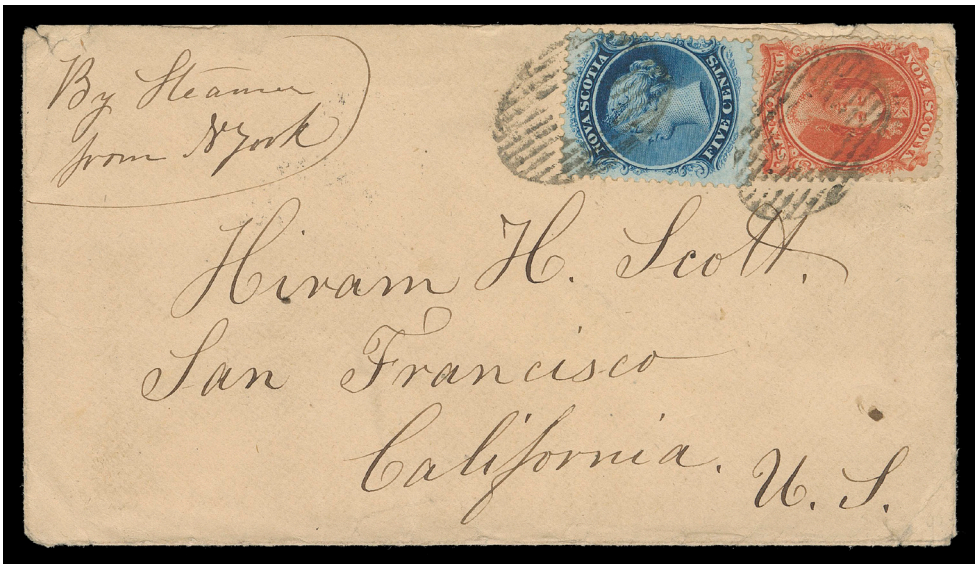 By Steamer
from NYork
NOVA SCOTIA
FIVE CENTS
NOVA SCOTIA
CENTS
Hiram H. Scott.
San Francisco
California. U. S.